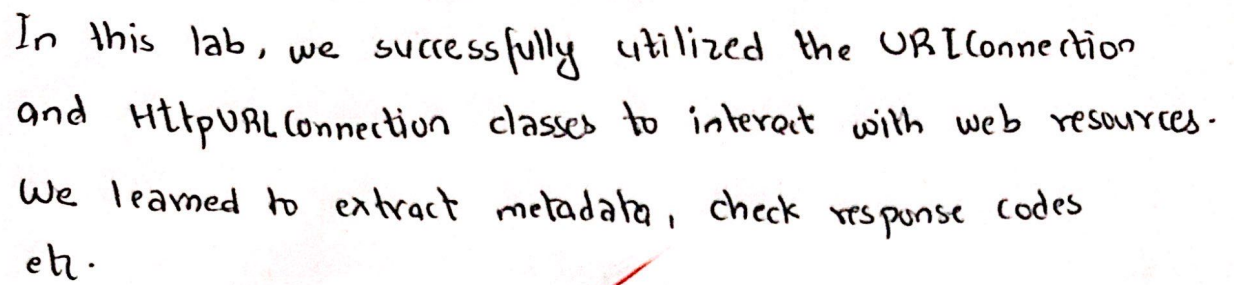 In this lab, we successfully utilized the URIConnection
and HttpURLConnection classes to interact with web resources.
We learned to extract metadata, check response codes
etc.